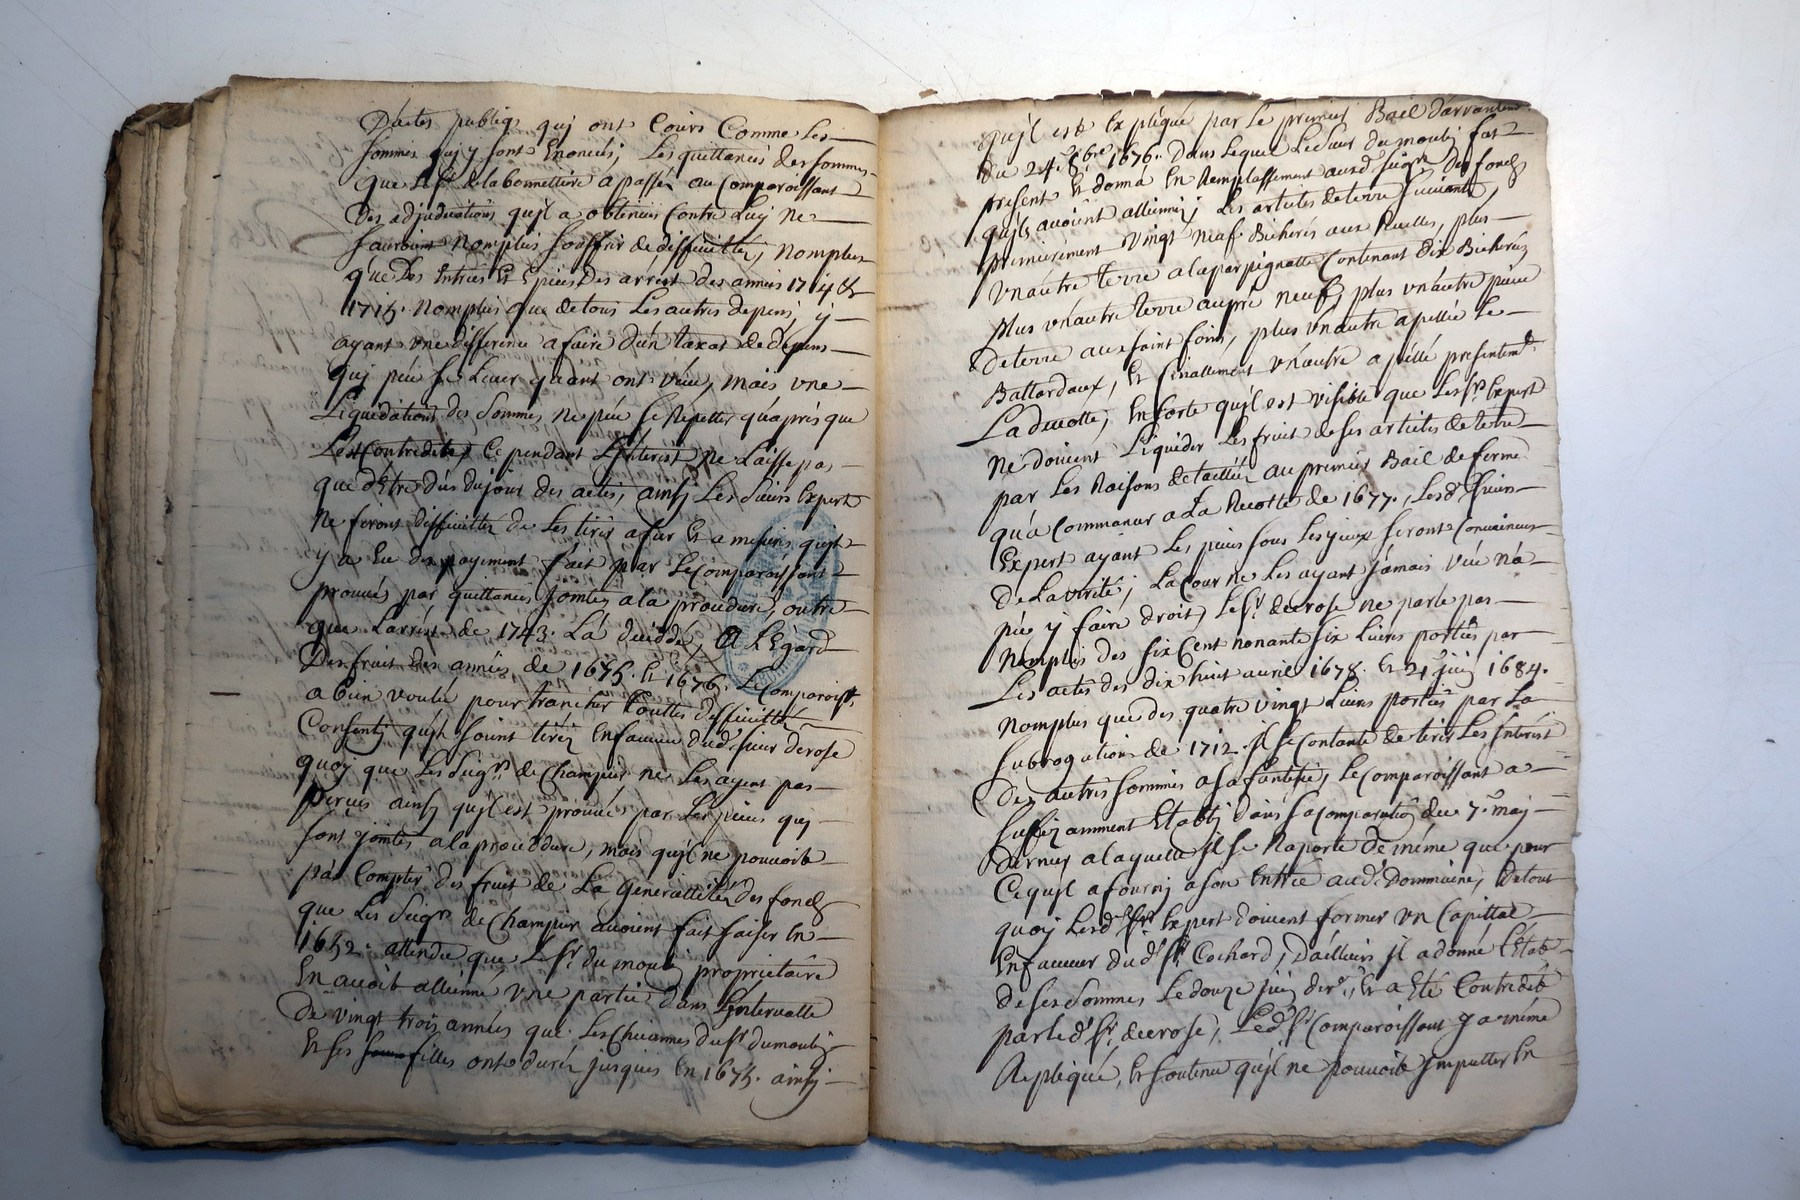 Dactes publiqs quj ont Cours Comme Les
sommes quj y sont Enoncéés, Les quittances des sommes
que Le sr delabonnetiere a passéz au Comparoissant
Des adjudications qujl a obtenues Contre Luy ne
sauroint nomplus souffrir de diffiicultéz, nomplus
que Des Entrées Et Epices Des arrest des annéés 1714 &
1715. nomplus que de tous Les autres depens, y
ayant une difference a faire d'un taxat de dépens
quj peu se Lever quant ont veu, mais vne
Liquidation des sommes ne peu se Repetter qu'après que
Cependant L'Interest ne Laisse pas
que d'Etre dus du jour des actes, ainsj Les sieurs Expert
ne feront diffiicultéz de Les tirer a fur Et a mesure qujl
y a Eu des payement fait par Le Comparoissant
prouvés par quittances jointes a la procedure, outre
que Larrest de 1743. La décidé, A L'Egard
Des fruit des années de 1675. Et 1676. Le Comparoisst
a bien voulu pour trancher touttes diffiicultés
Consentj qujls soient tiréz En faveur dudt sieur derose
quoj que Les seigrs de Champier ne Les ayent pas
perçus ainsj qujl est prouvés par Les pieces quj
sont jointes a la procedure, mais qujl ne pouvoit
pas Compter des fruit de La generallité des fonds
que Les seigrs de Champier avoient fait saisir En
1652. attendu que Le sr du mouly proprietaire
En avoit allienné vne partie dans L'Intervalle
De vingt trois années que Les Chicannes du sr dumouly
Et ses filles ont duréz jusques En 1675. ainsj
qujl est Explique par Le premier Bail d'arrantemt
du 24. 8bre 1676. Dans Lequel Le sieur du mouly fut
present Et donna En Remplassement ausd. seigrs des fonds
qujls avoient alliennéz, Les articles de terre suivants,
premierement vingt neuf Bicherés aux Ruelles, plus
vn autre terre a la parpignatte Contenant dix Bicheréz
plus vn autre terre au pré neuf, plus vn autre piece
de terre aux saint foins, plus vn autre apellée Le
Battardaux, Et finallement vn autre apéllé presentemt
La duiotte, En sorte qujl est visible que Les srs Expert
ne doivent Liquider Les fruit de ses articles de terre
par Les Raisons detailliéz au premier Bail de ferme
qu'a Commancer a La Recolte de 1677. Lesdt sieurs
Expert ayant Les pieces sous Les yieux seront Convaincus
De La verité, La Cour ne Les ayant jamais vüe n'a
peu y faire droit, Le sr derose ne parle pas
nomplus des six Cent nonante six Livres portéés par
Les actes des dix huit avril 1678. Et 21 juin 1684.
nomplus que des quatre vingt Livres portéés par La
subrogation de 1712. jl se Contante de tirer Les Interest
Des autres sommes a sa fantesie, Le Comparoissant a
suffizamment Etablj dans sa Comparution du 7e maj
dernier a laquelle jl se Raporte de méme que pour
Ce qujl a fournj a son Entréé audt Dommaine, De tout
quoj Lesdt srs Expert doivent former vn Capittal
En faveur dudt sr Cochard, D'aillieurs jl a donné L'Etat
de ses sommes Le douze juin der., Et a Eté Contredit
par Ledt sr derose, Ledt sr Comparoissant y a méme
Repliqué, Et soutenu qujl ne pouvoit Imputter En